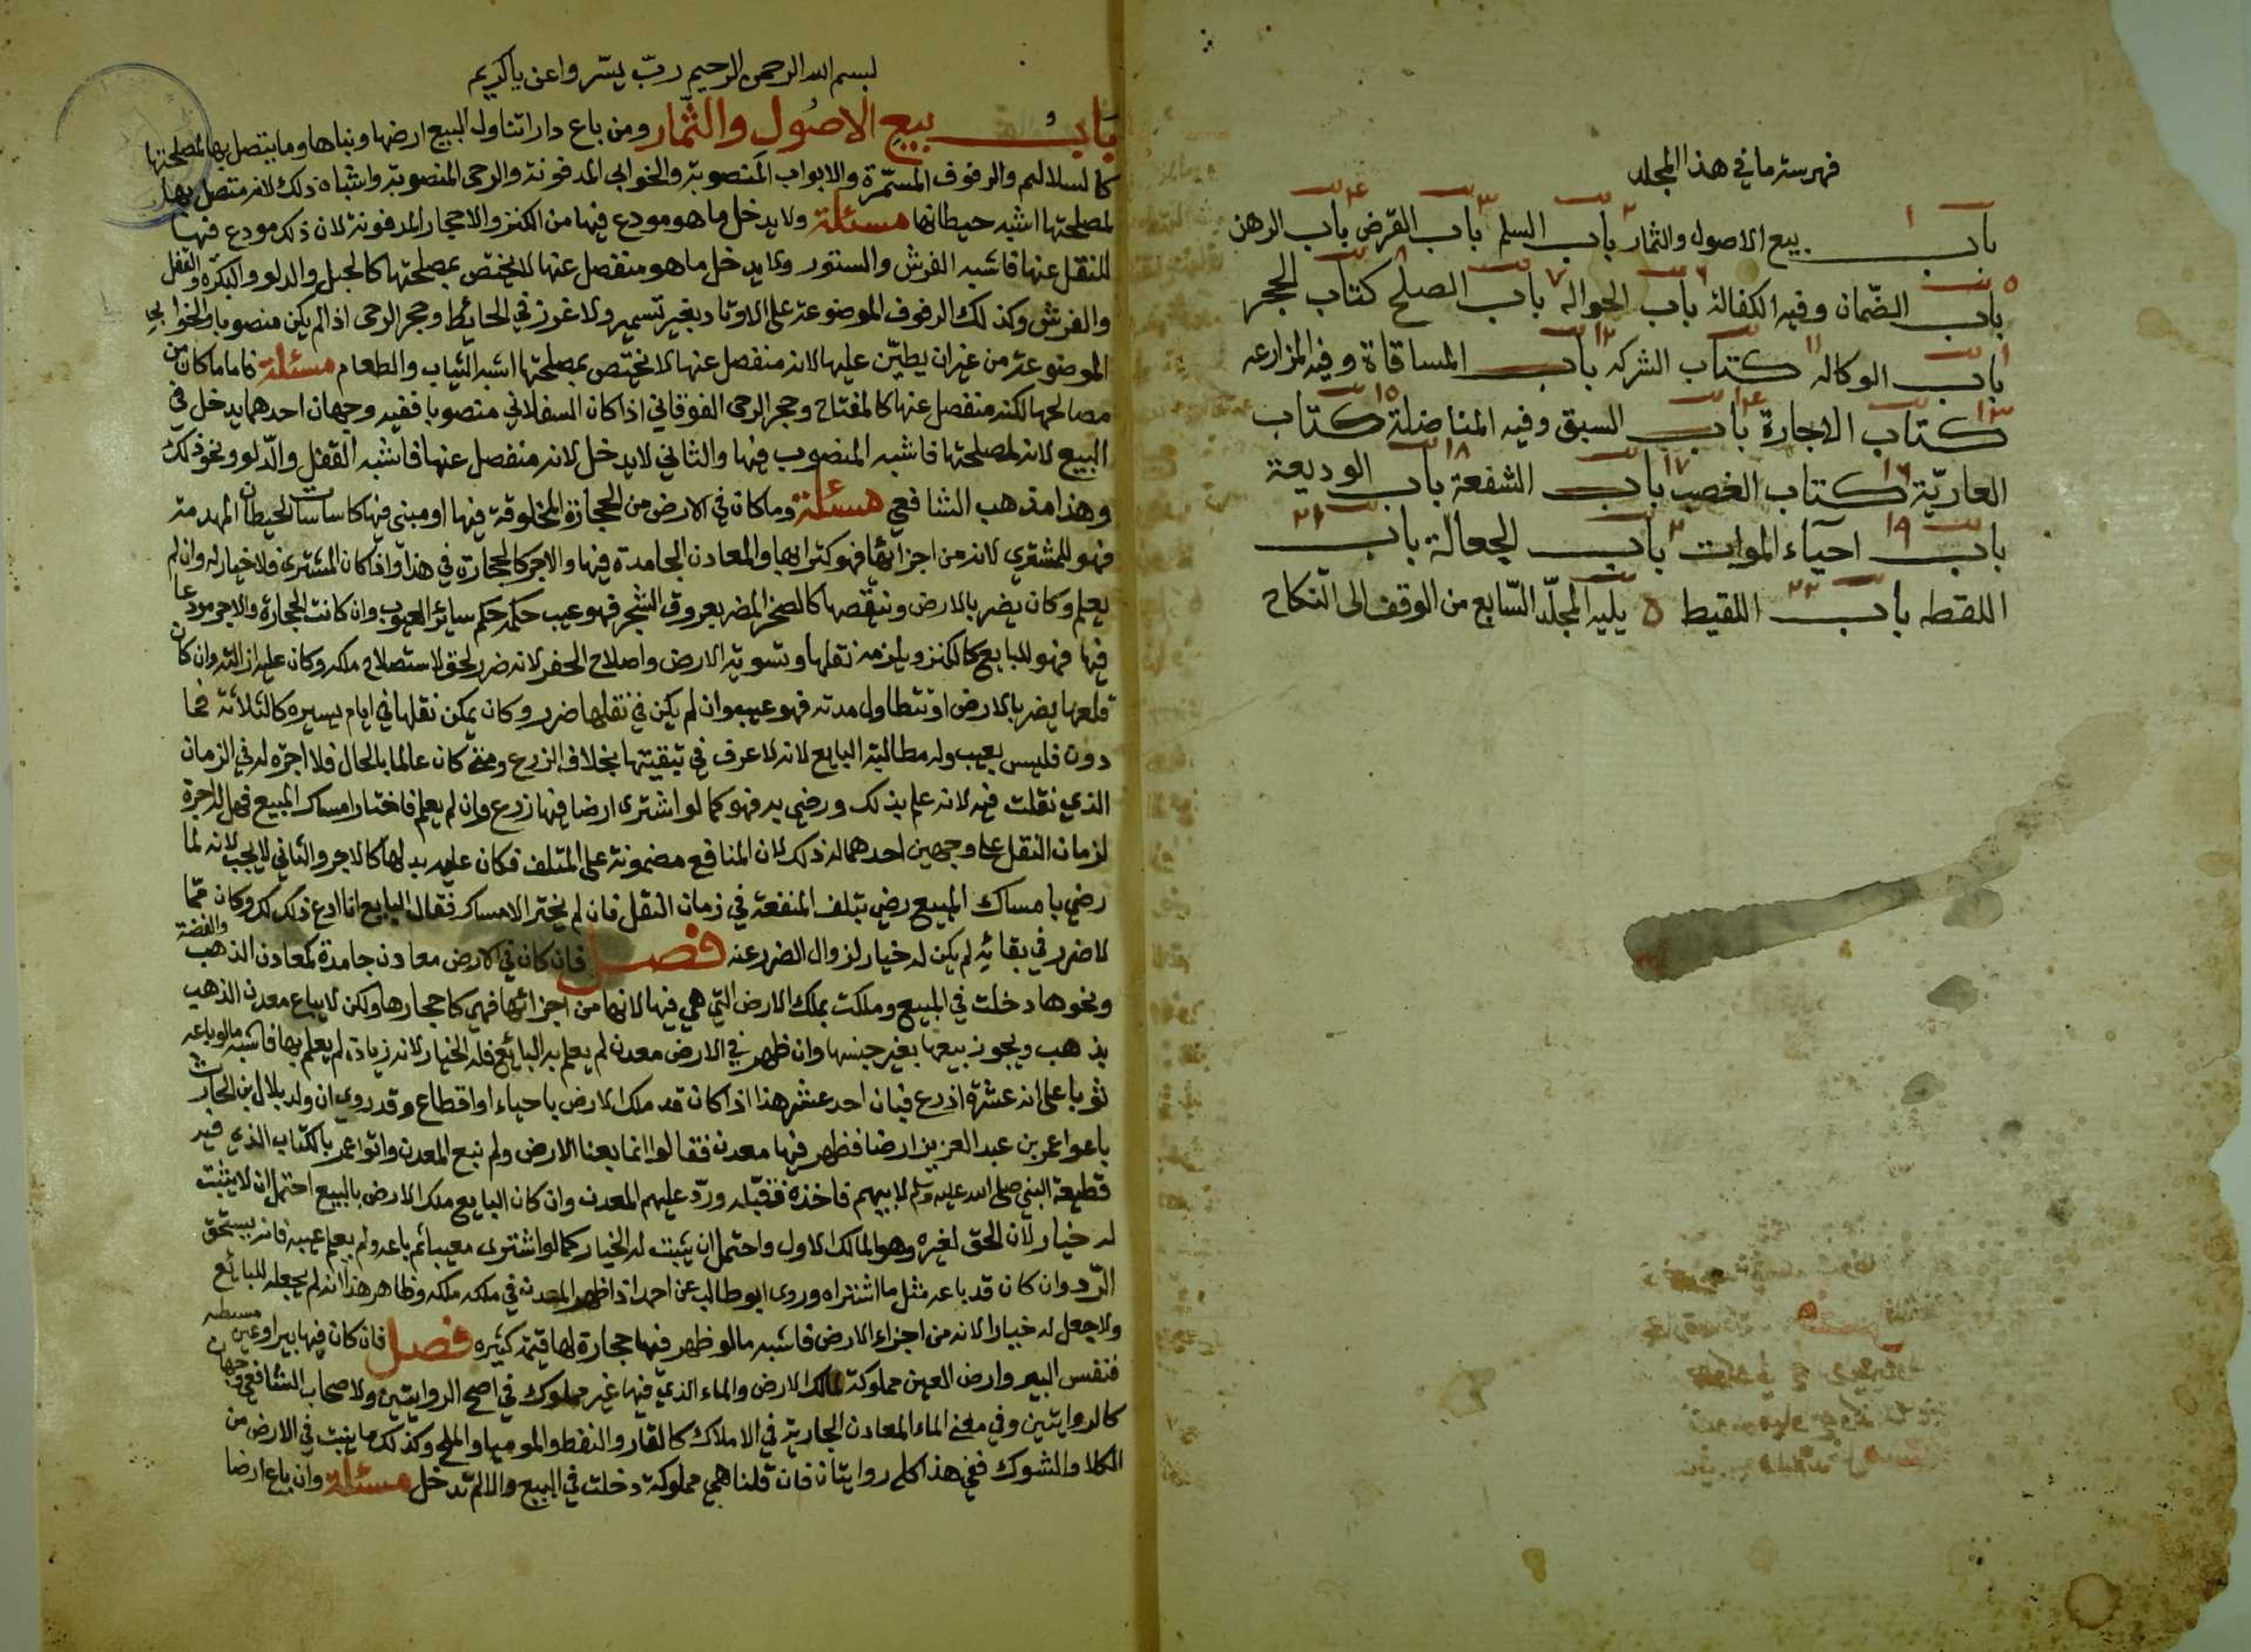 فهرسة ما في هذا المجلد
باب بيع الاصول والثمار باب السلم باب القرض باب الرهن
باب الضمان وفيه الكفالة باب الحواله باب الصلح كتاب الحجر
باب الوكاله كتاب الشركه باب المساقاة وفيه المزارعه
كتاب الاجارة باب السبق وفيه المناضلة كتاب
العاريّة كتاب الغصب باب الشفعة باب الوديعة
باب احياء الموات باب الجعالة باب
اللقطه باب اللقيط ه يليه المجلّد السّابع من الوقف الى النّكاح
بسم الله الرحمن الرحيم ربّ يسّر واعن ياكريم
باب بيع الاصول والثمار ومن باع دارا تناول البيع ارضها وبناها وما يتصل بها لمصلحتها
كالسلاليم والرفوف المسمّرة والابواب المنصوبة والخوابي المدفونة والرحى المنصوبة واشباه ذلك لانه متصل بها
لمصلحتها اشبه حيطانها مسئلة ولا يدخل ما هو مودع فيها من الكنز والاحجار المدفونة لان ذلك مودع فيها
للنقل عنها فاشبه الفرش والستور ولا يدخل ما هو منفصل عنها لا يختص بمصلحتها كالحبل والدلو والبكره والقفل
والفرش وكذلك الرفوف الموضوعة على الاوتاد بغير تسمير ولا غرز في الحائط وحجر الرحى اذا لم يكن منصوبا والخوابي
الموضوعة من غير ان يطيّن عليها لانه منفصل عنها لا يختص بمصلحتها اشبه الثياب والطعام مسئلة فاما ما كان من
مصالحها لكنه منفصل عنها كالمفتاح وحجر الرحى الفوقاني اذا كان السفلاني منصوبا ففيه وجهان احدهما يدخل في
البيع لانه لمصلحتها فاشبه المنصوب فيها والثاني لا يدخل لانه منفصل عنها فاشبه القفل والدّلو ونحو ذلك
وهذا مذهب الشافعي مسئلة وما كان في الارض من الحجارة المخلوقة فيها او مبني فيها كاساسات الحيطان المهدمة
فهو للمشتري لانه من اجزائها فهو كترابها والمعادن الجامدة فيها والاجر كالحجارة في هذا واذا كان المشتري فلا خيار له وان لم
يعلم وكان يضر بالارض وينقصها كالصخر المضر بعروق الشجر فهو عيب حكمه حكم سائر العيوب وان كانت الحجارة والاجر مودعا
فيها فهو للبايع كالكنز ويلزمه نقلها وتسوية الارض واصلاح الحفر لانه ضرر لحق لاستصلاح ملكه وكان عليه ازالته وان كان
قلعها يضر بالارض او تتطاول مدته فهو عيب وان لم يكن في نقلها ضرر وكان يمكن نقلها في ايام يسيره كالثلاثة فما
دون فليس بعيب وله مطالبة البايع لانه لا عرف في تبقيتها بخلاف الزرع ومتى كان عالما بالحال فلا اجره له في الزمان
الذي نقلت فيه لانه علم بذلك ورضي به فهو كما لو اشترى ارضا فيها زرع وان لم يعلم فاختار امساك المبيع فهل له اجرة
لزمان النقل على وجهين احدهما له ذلك لان المنافع مضمونة على المتلف فكان عليه بدلها كالاجر والثاني لا يجب لانه لما
رضي بامساك المبيع رضي بتلف المنفعة في زمان النقل فان لم يختر الامساك فقال البايع انا ادع ذلك لك وكان ممّا
لا ضرر في بقائه لم يكن له خيار لزوال الضرر عنه فصل فان كان في الارض معادن جامدة كمعادن الذهب والفضة
ونحوها دخلت في المبيع وملكت بملك الارض التي هي فيها لانها من اجزائها فهي كاحجارها ولكن لا يباع معدن الذهب
بذهب ويجوز بيعها بغير جنسها وان ظهر في الارض معدن لم يعلم به البائع فله الخيار لانه زيادة لم يعلم بها فاشبه مالو باعه
ثوبا على انه عشرة اذرع فبان احد عشر هذا اذا كان قد ملك الارض باحياء او اقطاع وقد روي ان ولد بلال بن الحارث
باعوا عمر بن عبد العزيز ارضا فظهر فيها معدن فقالوا انما بعنا الارض ولم نبع المعدن واتوا عمر بالكتاب الذي فيه
قطيعة النبي صلى الله عليه وسلم لابيهم فاخذه فقبّله وردّ عليهم المعدن وان كان البايع ملك الارض بالبيع احتمل ان لا يثبت
له خيار لان الحق لغيره وهو المالك الاول واحتمل ان يثبت له الخيار كما لو اشترى معيبا ثم باعه ولم يعلم عيبه فانه يستحق
الرّد وان كان قد باعه مثل ما اشتراه وروى ابو طالب عن احمد اذا ظهر المعدن في ملكه ملكه وظاهر هذا انه لم يجعله للبائع
ولا جعل له خيارا لانه من اجزاء الارض فاشبه مالو ظهر فيها حجارة لها قيمة كثيره فصل فان كان فيها بير او عين مستنبطه
فنفس البير وارض العين مملوكة لمالك الارض والماء الذي فيها غير مملوك في اصح الروايتين ولاصحاب الشافعي وجهان
كالروايتين وفي معنى الماء المعادن الجارية في الاملاك كالقار والنفط والموميا والملح وكذلك ما ينبت في الارض من
الكلا والشوك ففي هذا كله روايتان فان قلنا هي مملوكة دخلت في البيع والا لم تدخل مسئلة وان باع ارضا